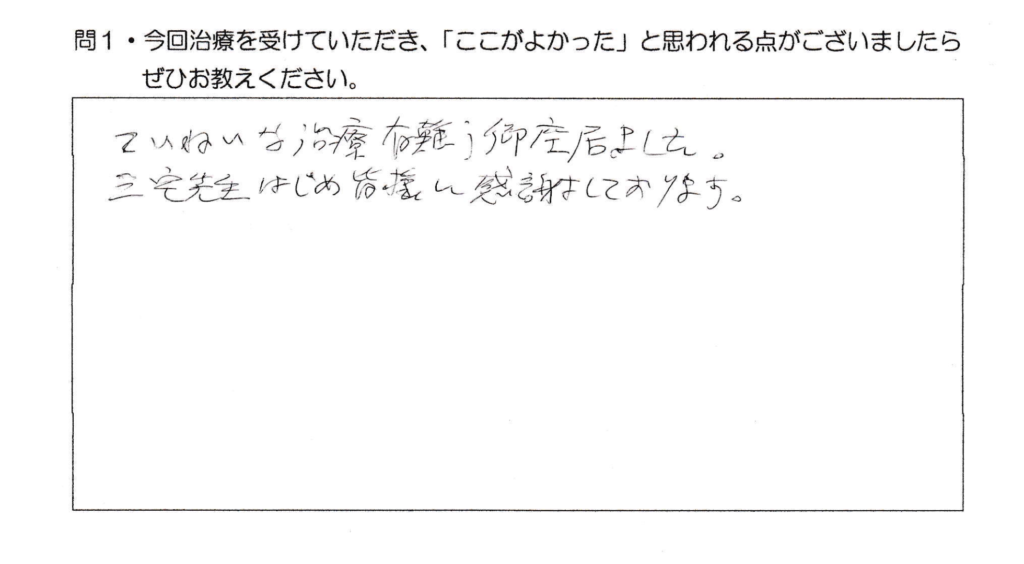 問1・今回治療を受けていただき、「ここがよかった」と思われる点がございましたら
ぜひお教えください。
ていねいな治療有難う御座居ました。
三宅先生はじめ皆様に感謝しております。